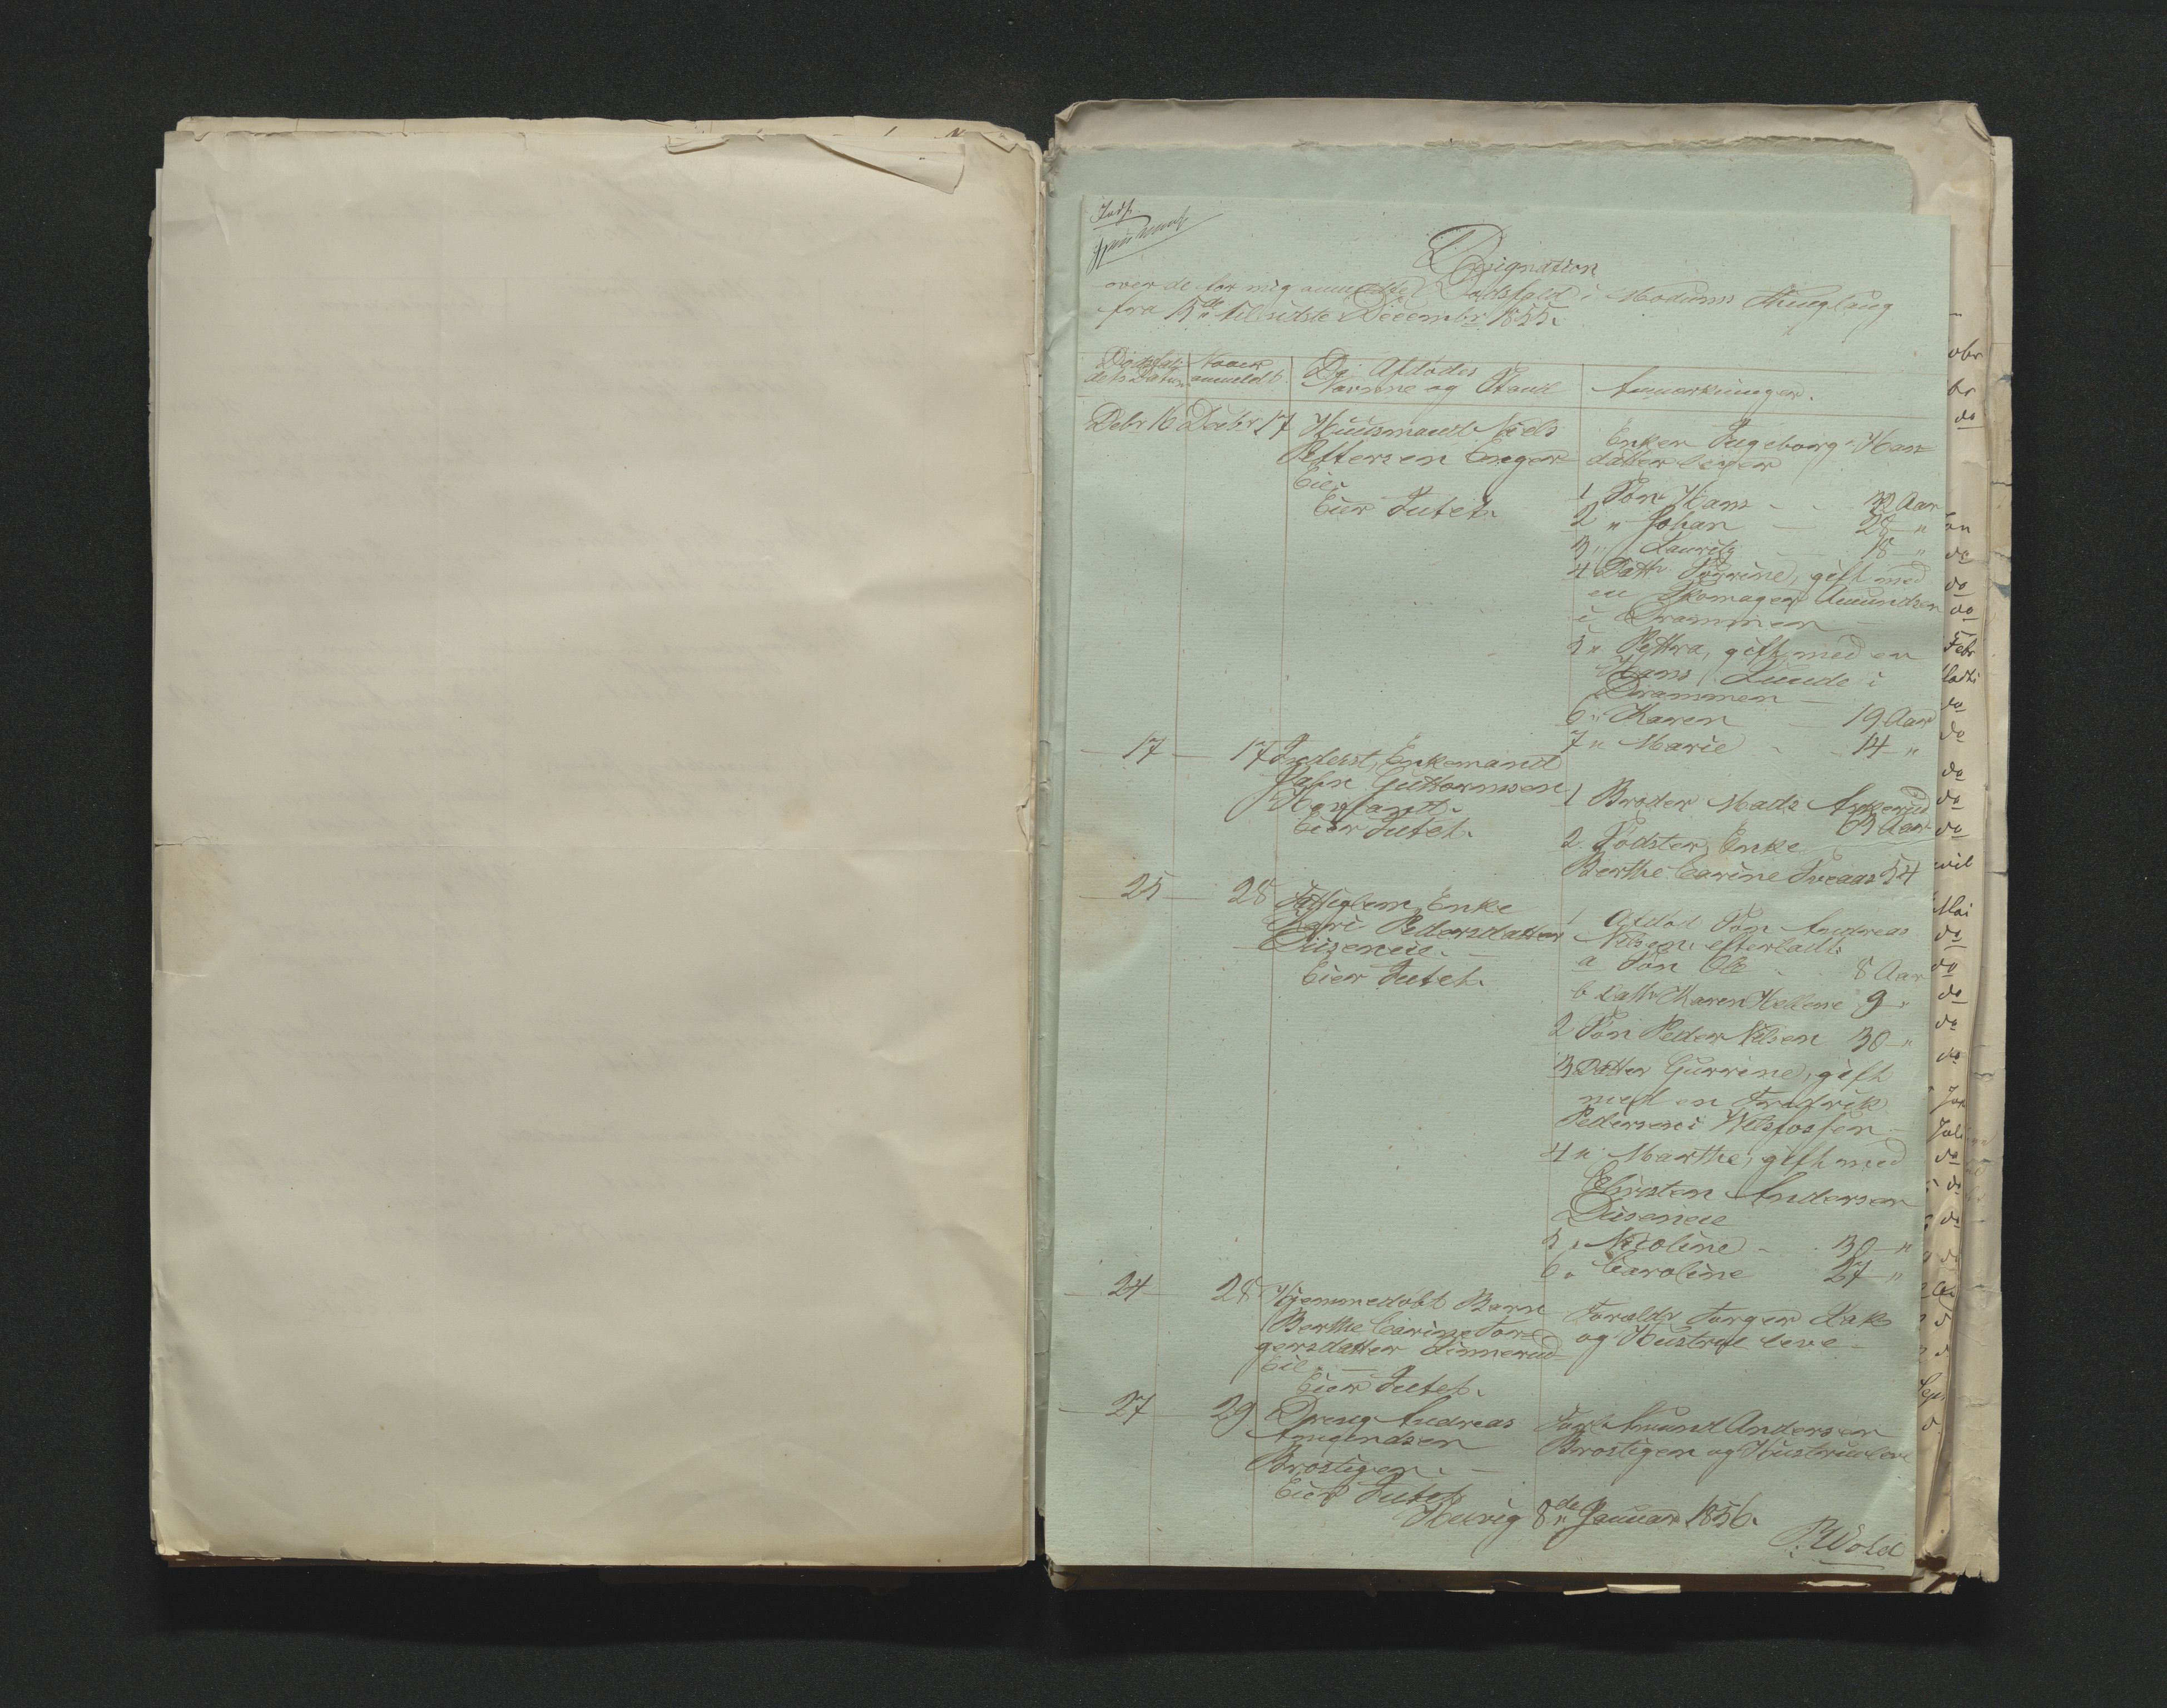 Designation
over de for mig anmeldte Dødsfald i Modums Thinglaug
fra 15de til sidste December 1855.
Dødsfal-
dets Datum
Naar
anmeldt.
De Afdødes
Navne og Stand
Anmærkninger.
Debr 16 Decbr 17 Huusmand Niels
Pettersen Enger
Eie.
Eier Intet.
Enken Ingeborg Hans
datter lever
1 Søn Hans 32 Aar
2 " Johan 28 "
3 " Lauritz 18 "
4 Dattr Sørrine, gift med
en Skomager Amundsen
i Drammen
5 " Pettra, gift med en
Hans Lunde i
Drammen
6 " Karen 19 Aar
7 " Marie 14 "
17 17 Inderst, Enkemand
John Guttormsen
Eier Intet.
1 Broder Mads
63 Aar
2 Sødster, Enke
Berthe Carine 54
25 28 Fattiglem, Enke
Kari Pedersdatter
Eier Intet.
1 Afdød Søn Andreas
Nilsen, efterladt
a Søn Ole 8 Aar
b Dattr Karen Hellene 9 "
2 Søn Peder Nilsen 30 "
3 Datter Gurrine, gift
med en Fredrik
Pedersen i Vittsfossen
4 " Marthe, gift med
Christen Andersen
5 " Nicoline 30 "
6 " Caroline 27 "
24 28 Hjemmedøbt Barn
Berthe Carine Tor-
gersdatter
Eie
Eier Intet.
Forældr Torger
og Hustrue leve
27 29 Dreng Andreas
Amundsen
Brostigen.
Eier Intet
Far Amund Andersen
Brostigen og Hustrue leve
8de Januar 1856.
P. Wold